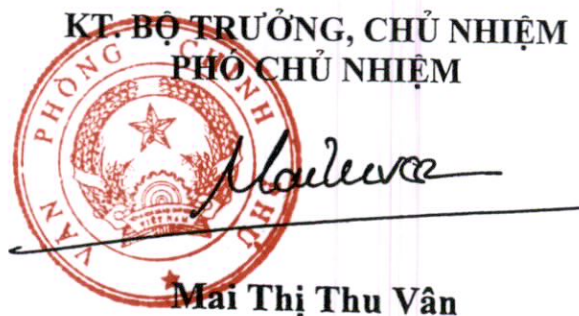 KT. BỘ TRƯỞNG, CHỦ NHIỆM
PHÓ CHỦ NHIỆM
VĂN PHÒNG CHÍNH PHỦ
VIỆT NAM
Mai Thị Thu Vân